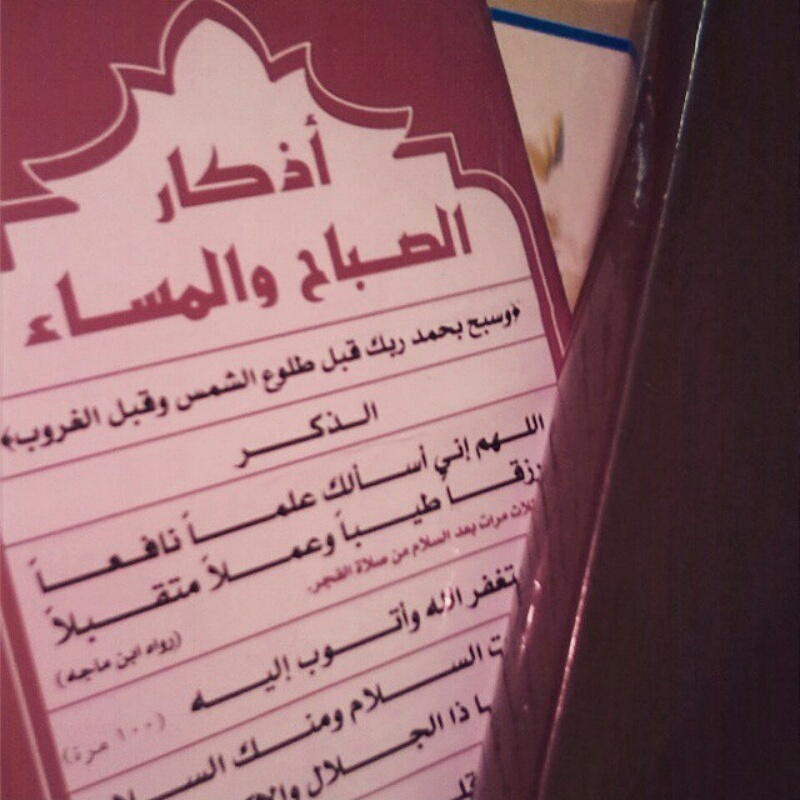 أذكار
الصباح والمساء
﴿وسبح بحمد ربك قبل طلوع الشمس وقبل الغروب﴾
الذكر
اللهم إني أسألك علماً نافعاً
رزقاً طيباً وعملاً متقبلاً
ثلاث مرات بعد السلام من صلاة الفجر.
(رواه ابن ماجه)
الله وأتوب إليه
(١٠٠ مرة)
السلام ومنك السلا
ذا الجلال